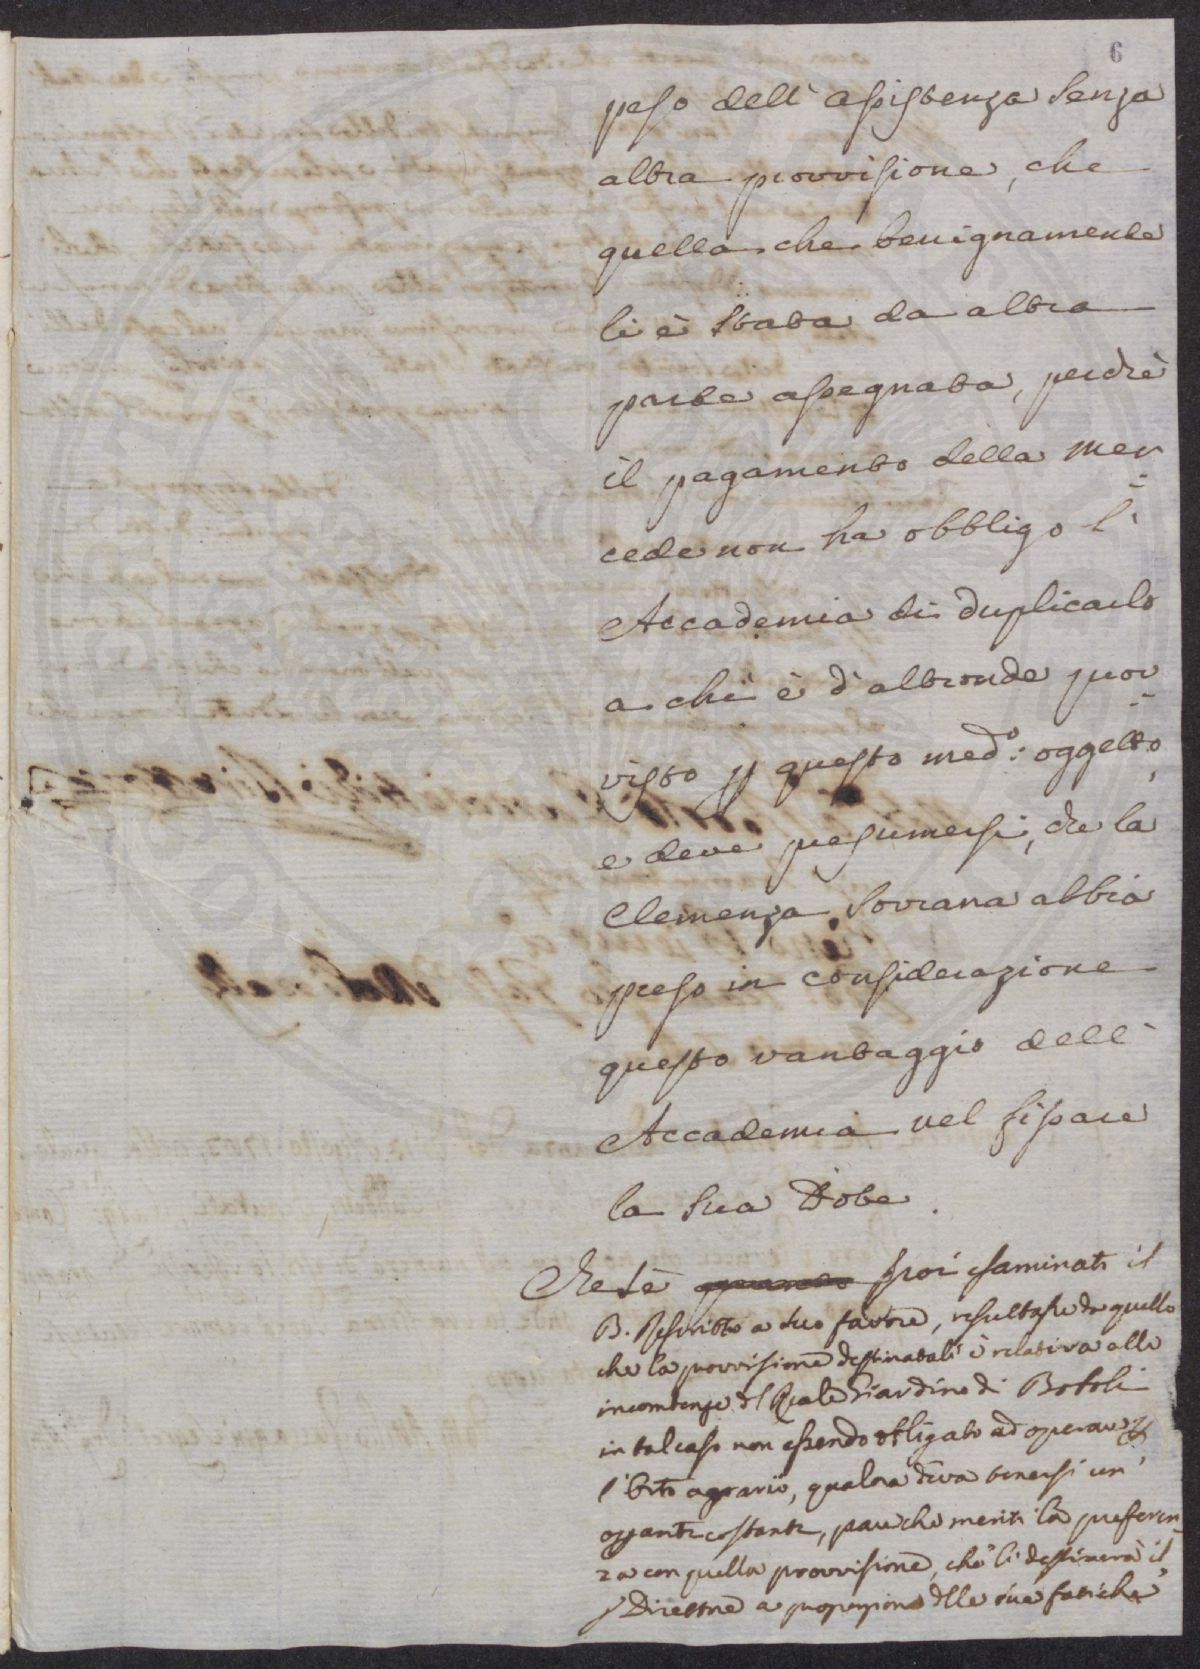 6
peso dell'assistenza senza
altra provvisione, che
quella che benignamente
li è stata da altra
parte assegnata, perchè
il pagamento della mer
cede non ha obbligo l'
Accademia di duplicarlo
a chi è d'altronde prov
visto p questo med.o: oggetto,
e deve presumersi, che la
Clemenza Sovrana abbia
preso in considerazione
questo vantaggio dell'
Accademia nel fissare
la sua Dote.
Che se poi esaminati il
B. Rescritto a suo favore, resultasse da quello
che la provvisione destinatali è relativa alle
incombenze del Reale Giardino di Boboli
in tal caso non essendo obbligato ad operare p
l'Orto agrario, qualora deva tenersi un'
oprante costante, pare che meriti la preferen
za con quella provvisione, che li destinerà il
Direttore a proporzione delle sue fatiche